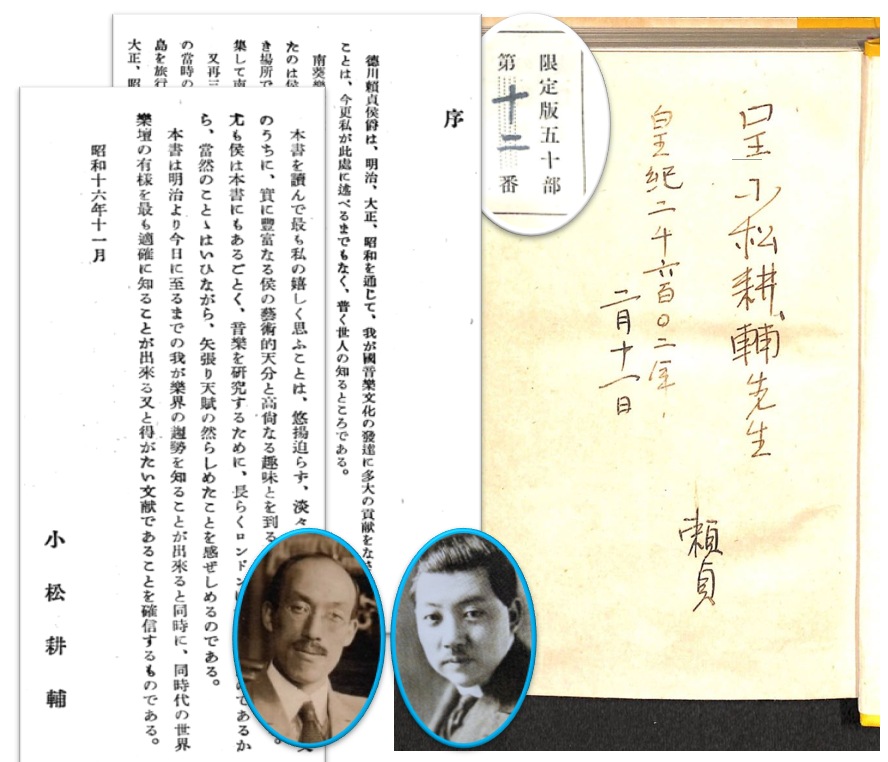 呈小松耕輔先生
皇紀二千六百〇二年
二月十一日
頼貞
限定版五十部
第十二番
序
德川賴貞侯爵は、明治、大正、昭和を通じて、我が國音樂文化の發達に多大の貢獻をなさ
ことは、今更私が此處に述べるまでもなく、普く世人の知るところである。
南葵樂
たのは侯
き場所で
集して南
又再三
の當時の
島を旅行
大正、昭
本書を讀んで最も私の嬉しく思ふことは、悠揚迫らず、淡々
のうちに、實に豐富なる侯の藝術的天分と高尙なる趣味とを到る
尤も侯は本書にもあるごとく、音樂を研究するために、長らくロンドンに のであるか
ら、當然のことゝはいひながら、矢張り天賦の然らしめたことを感ぜしめるのである。
本書は明治より今日に至るまでの我が樂界の趨勢を知ることが出來ると同時に、同時代の世界
樂壇の有樣を最も適確に知ることが出來る又と得がたい文献であることを確信するものである。
昭和十六年十一月
小松耕輔